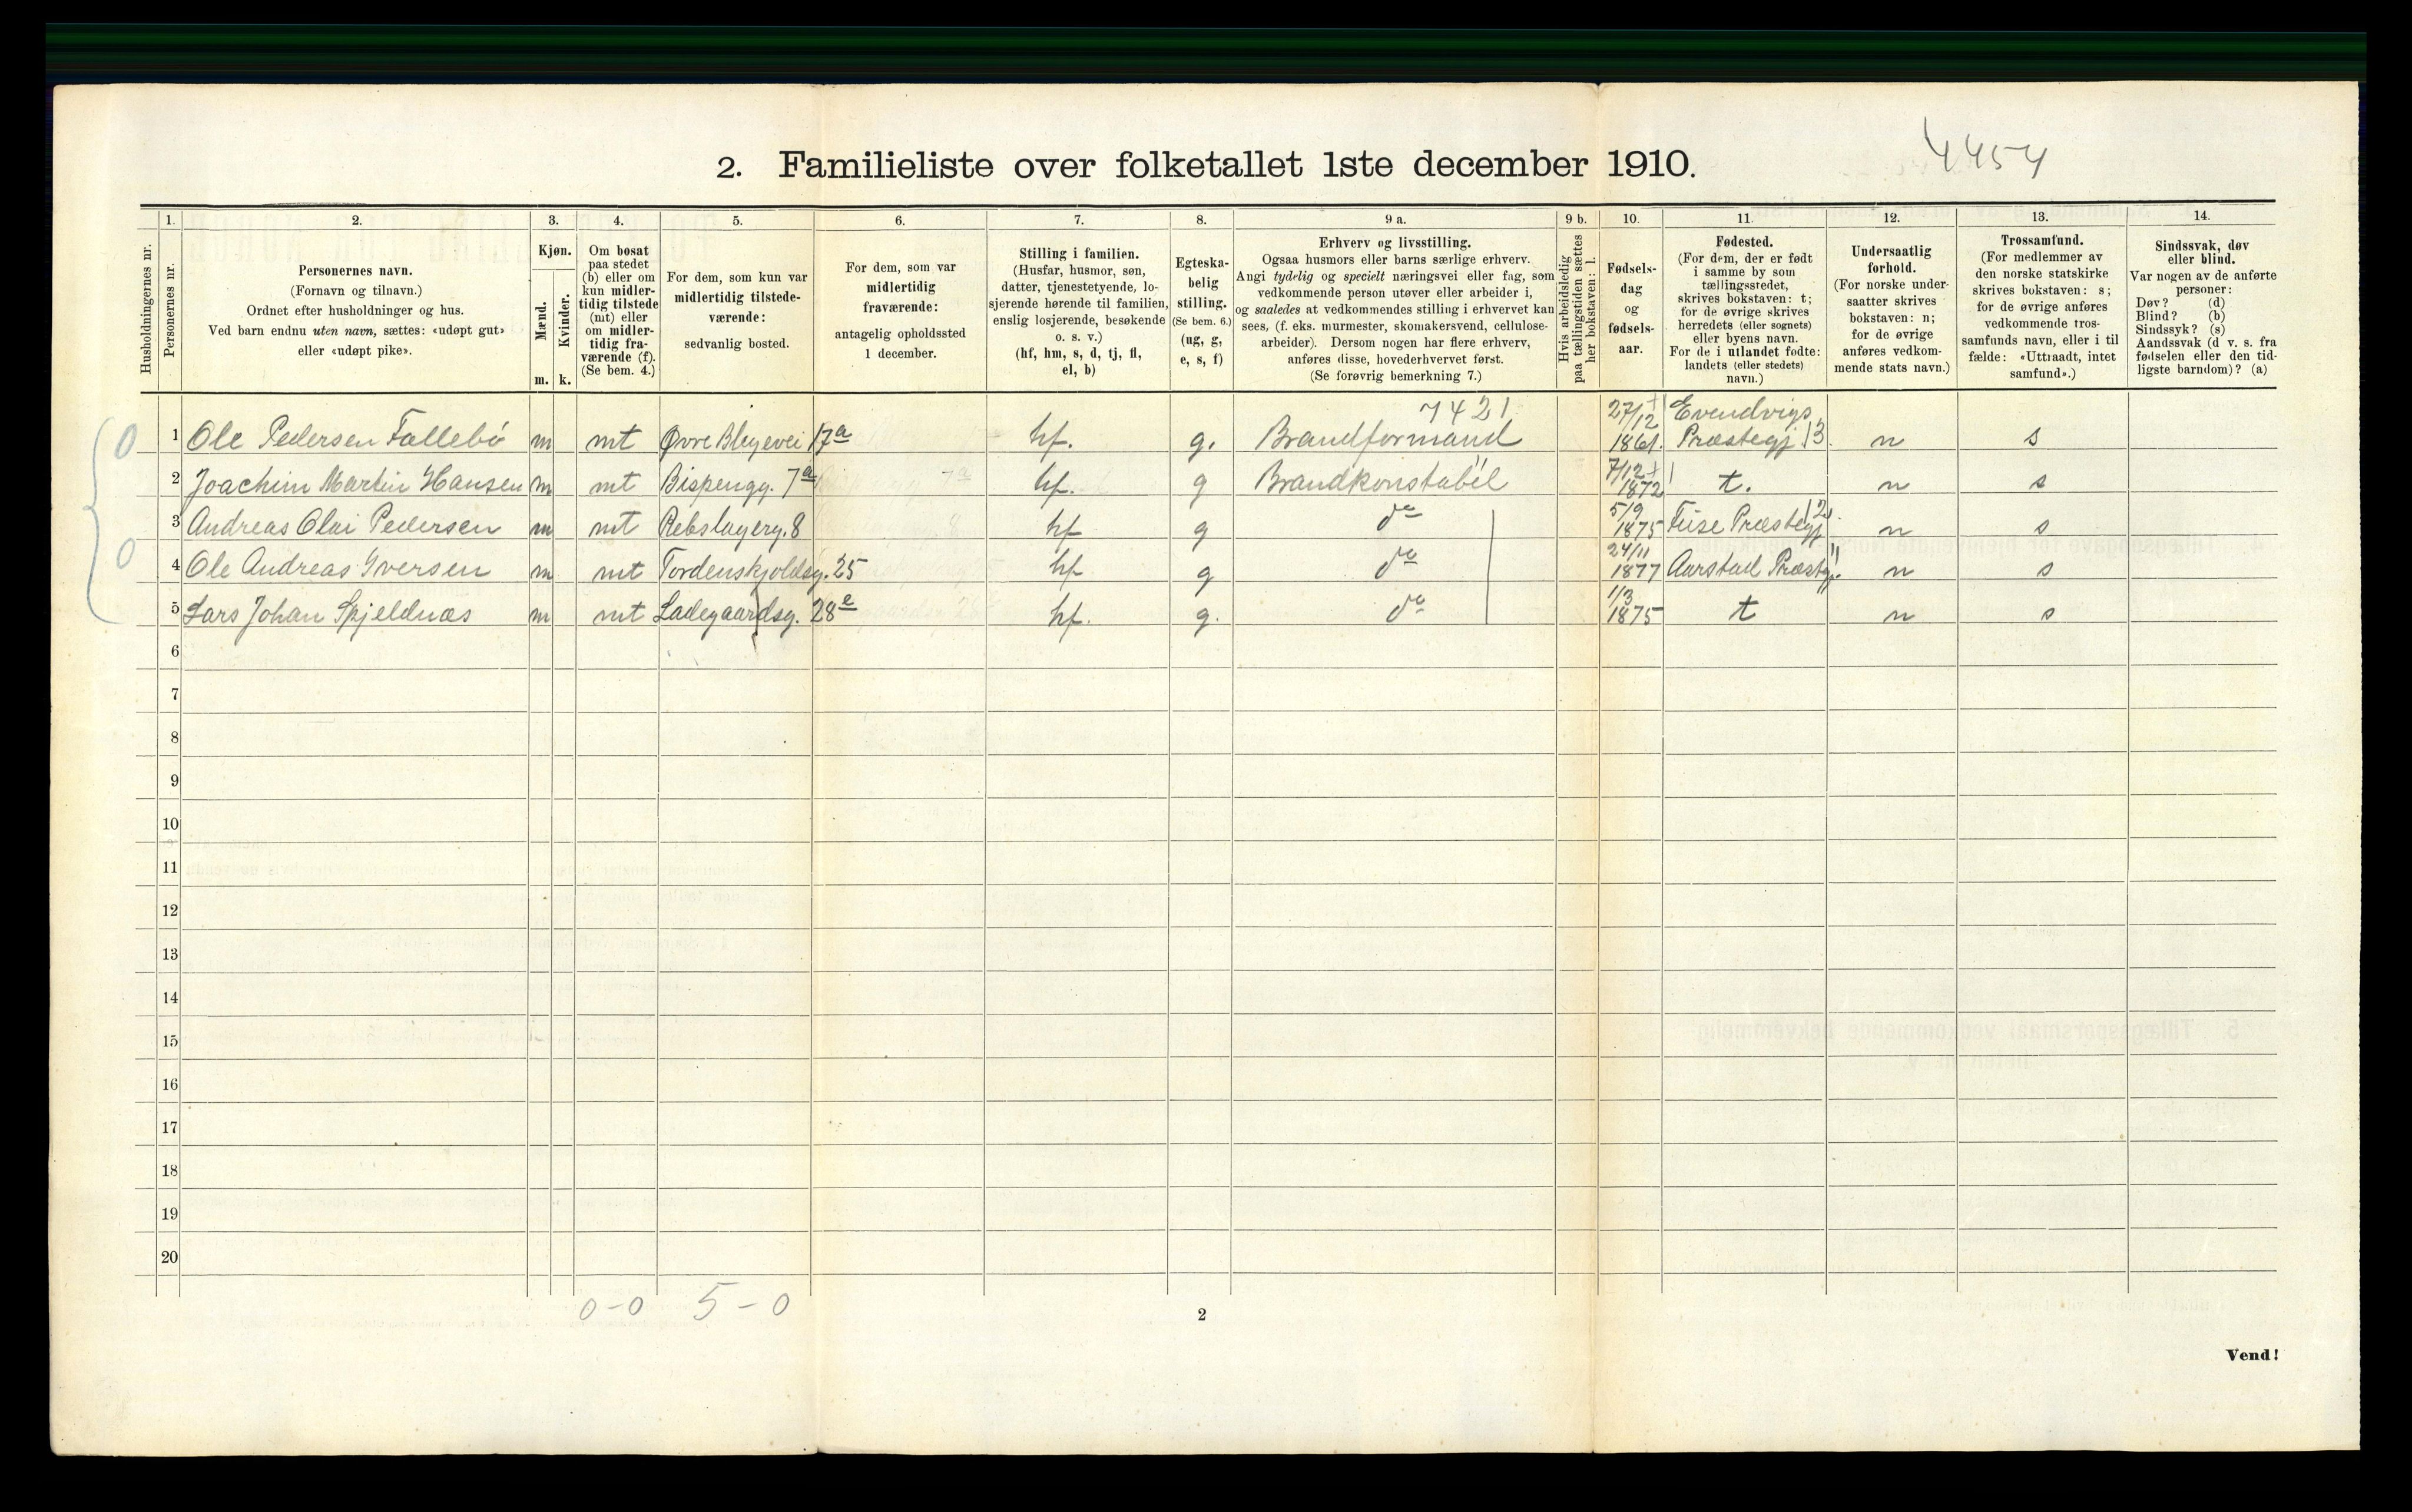 4454
2. Familieliste over folketallet 1ste december 1910.
Husholdningernes nr.
1.
Personernes nr.
2.
Personernes navn.
(Fornavn og tilnavn.)
Ordnet efter husholdninger og hus.
Ved barn endnu uten navn, sættes: «udøpt gut»
eller «udøpt pike».
3.
Kjøn.
Mænd.
Kvinder.
m. k.
4.
Om bosat
paa stedet
(b) eller om
kun midler-
tidig tilstede
(mt) eller
om midler-
tidig fra-
værende (f).
(Se bem. 4.)
5.
For dem, som kun var
midlertidig tilstede-
værende:
sedvanlig bosted.
6.
For dem, som var
midlertidig
fraværende:
antagelig opholdssted
1 december.
7.
Stilling i familien.
(Husfar, husmor, søn,
datter, tjenestetyende, lo-
sjerende hørende til familien,
enslig losjerende, besøkende
o. s. v.)
(hf, hm, s, d, tj, fl,
el, b)
8.
Egteska-
belig
stilling.
(Se bem. 6.)
(ug, g,
e, s, f)
9 a.
Erhverv og livsstilling.
Ogsaa husmors eller barns særlige erhverv.
Angi tydelig og specielt næringsvei eller fag, som
vedkommende person utøver eller arbeider i,
og saaledes at vedkommendes stilling i erhvervet kan
sees, (f. eks. murmester, skomakersvend, cellulose-
arbeider). Dersom nogen har flere erhverv,
anføres disse, hovederhvervet først.
(Se forøvrig bemerkning 7.)
9 b.
Hvis arbeidsledig
paa tællingstiden sættes
her bokstaven: l.
10.
Fødsels-
dag
og
fødsels-
aar.
11.
Fødested.
(For dem, der er født
i samme by som
tællingsstedet,
skrives bokstaven: t;
for de øvrige skrives
herredets (eller sognets)
eller byens navn.
For de i utlandet fødte:
landets (eller stedets)
navn.)
12.
Undersaatlig
forhold.
(For norske under-
saatter skrives
bokstaven: n;
for de øvrige
anføres vedkom-
mende stats navn.)
13.
Trossamfund.
(For medlemmer av
den norske statskirke
skrives bokstaven: s;
for de øvrige anføres
vedkommende tros-
samfunds navn, eller i til
fælde: «Uttraadt, intet
samfund».)
14.
Sindssvak, døv
eller blind.
Var nogen av de anførte
personer:
Døv? (d)
Blind? (b)
Sindssyk? (s)
Aandssvak (d. v. s. fra
fødselen eller den tid-
ligste barndom)? (a)
7421
0 1 Ole Pedersen Fallebø m mt Øvre Blegevei 17a hf. g. Brandformand 27/12 1861. Evendvigs Præstegj. 13. n s
2 Joachim Martin Hansen m mt Bispengg. 7a hf. g Brandkonstabel 7/12 1872 t. n s
3 Andreas Olai Pedersen m mt Rebslagerg. 8 hf g do 5/9 1875 Fuse Præstegj 12. n s
0 4 Ole Andreas Iversen m mt Tordenskjoldsg. 25 hf g do 24/11 1877 Aarstad Præstgj. n s
5 Lars Johan Skjeldnæs m mt Ladegaardsg. 28e hf. g. do 1/3 1875 t n s
6
7
8
9
10
11
12
13
14
15
16
17
18
19
20
0-0 5-0
2
Vend!